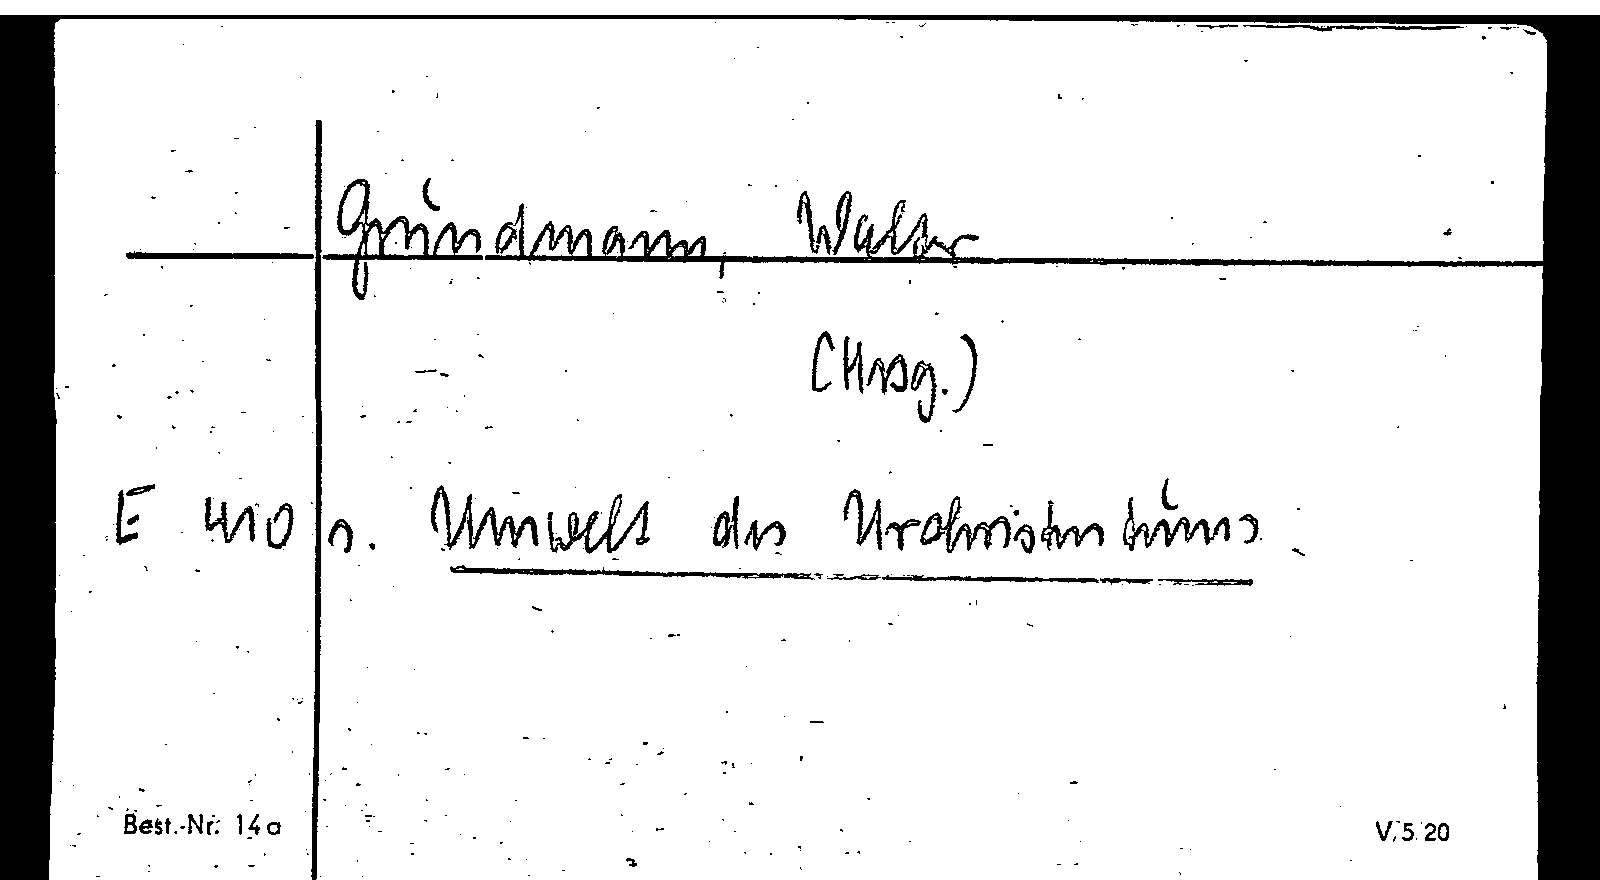 Grundmann, Walter
(Hrsg.)
E 410 s. Umwelt des Urchristentums
Best.-Nr. 14a V. 5 20